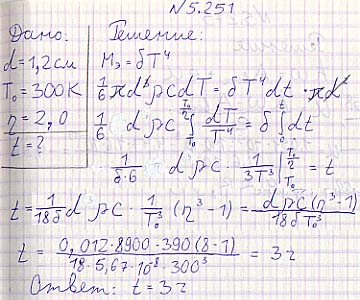 №5.251
Дано:
d = 1,2 см
T₀ = 300 К
η = 2,0
t = ?
Решение:
Mэ = δT⁴
1/6 πd³ρcdT = δT⁴dt · πd²
1/6 dρc ∫_{T₀}^{T₀/2} dT/T⁴ = δ ∫_0^t dt
1/(δ·6) dρc · 1/(3T³) |_{T₀}^{T₀/2} = t
t = 1/(18δ) dρc · 1/T₀³ (η³ − 1) = dρc(η³−1)/(18δT₀³)
t = 0,012·8900·390(8−1)/(18·5,67·10⁻⁸·300³) = 3 ч
Ответ: t = 3 ч